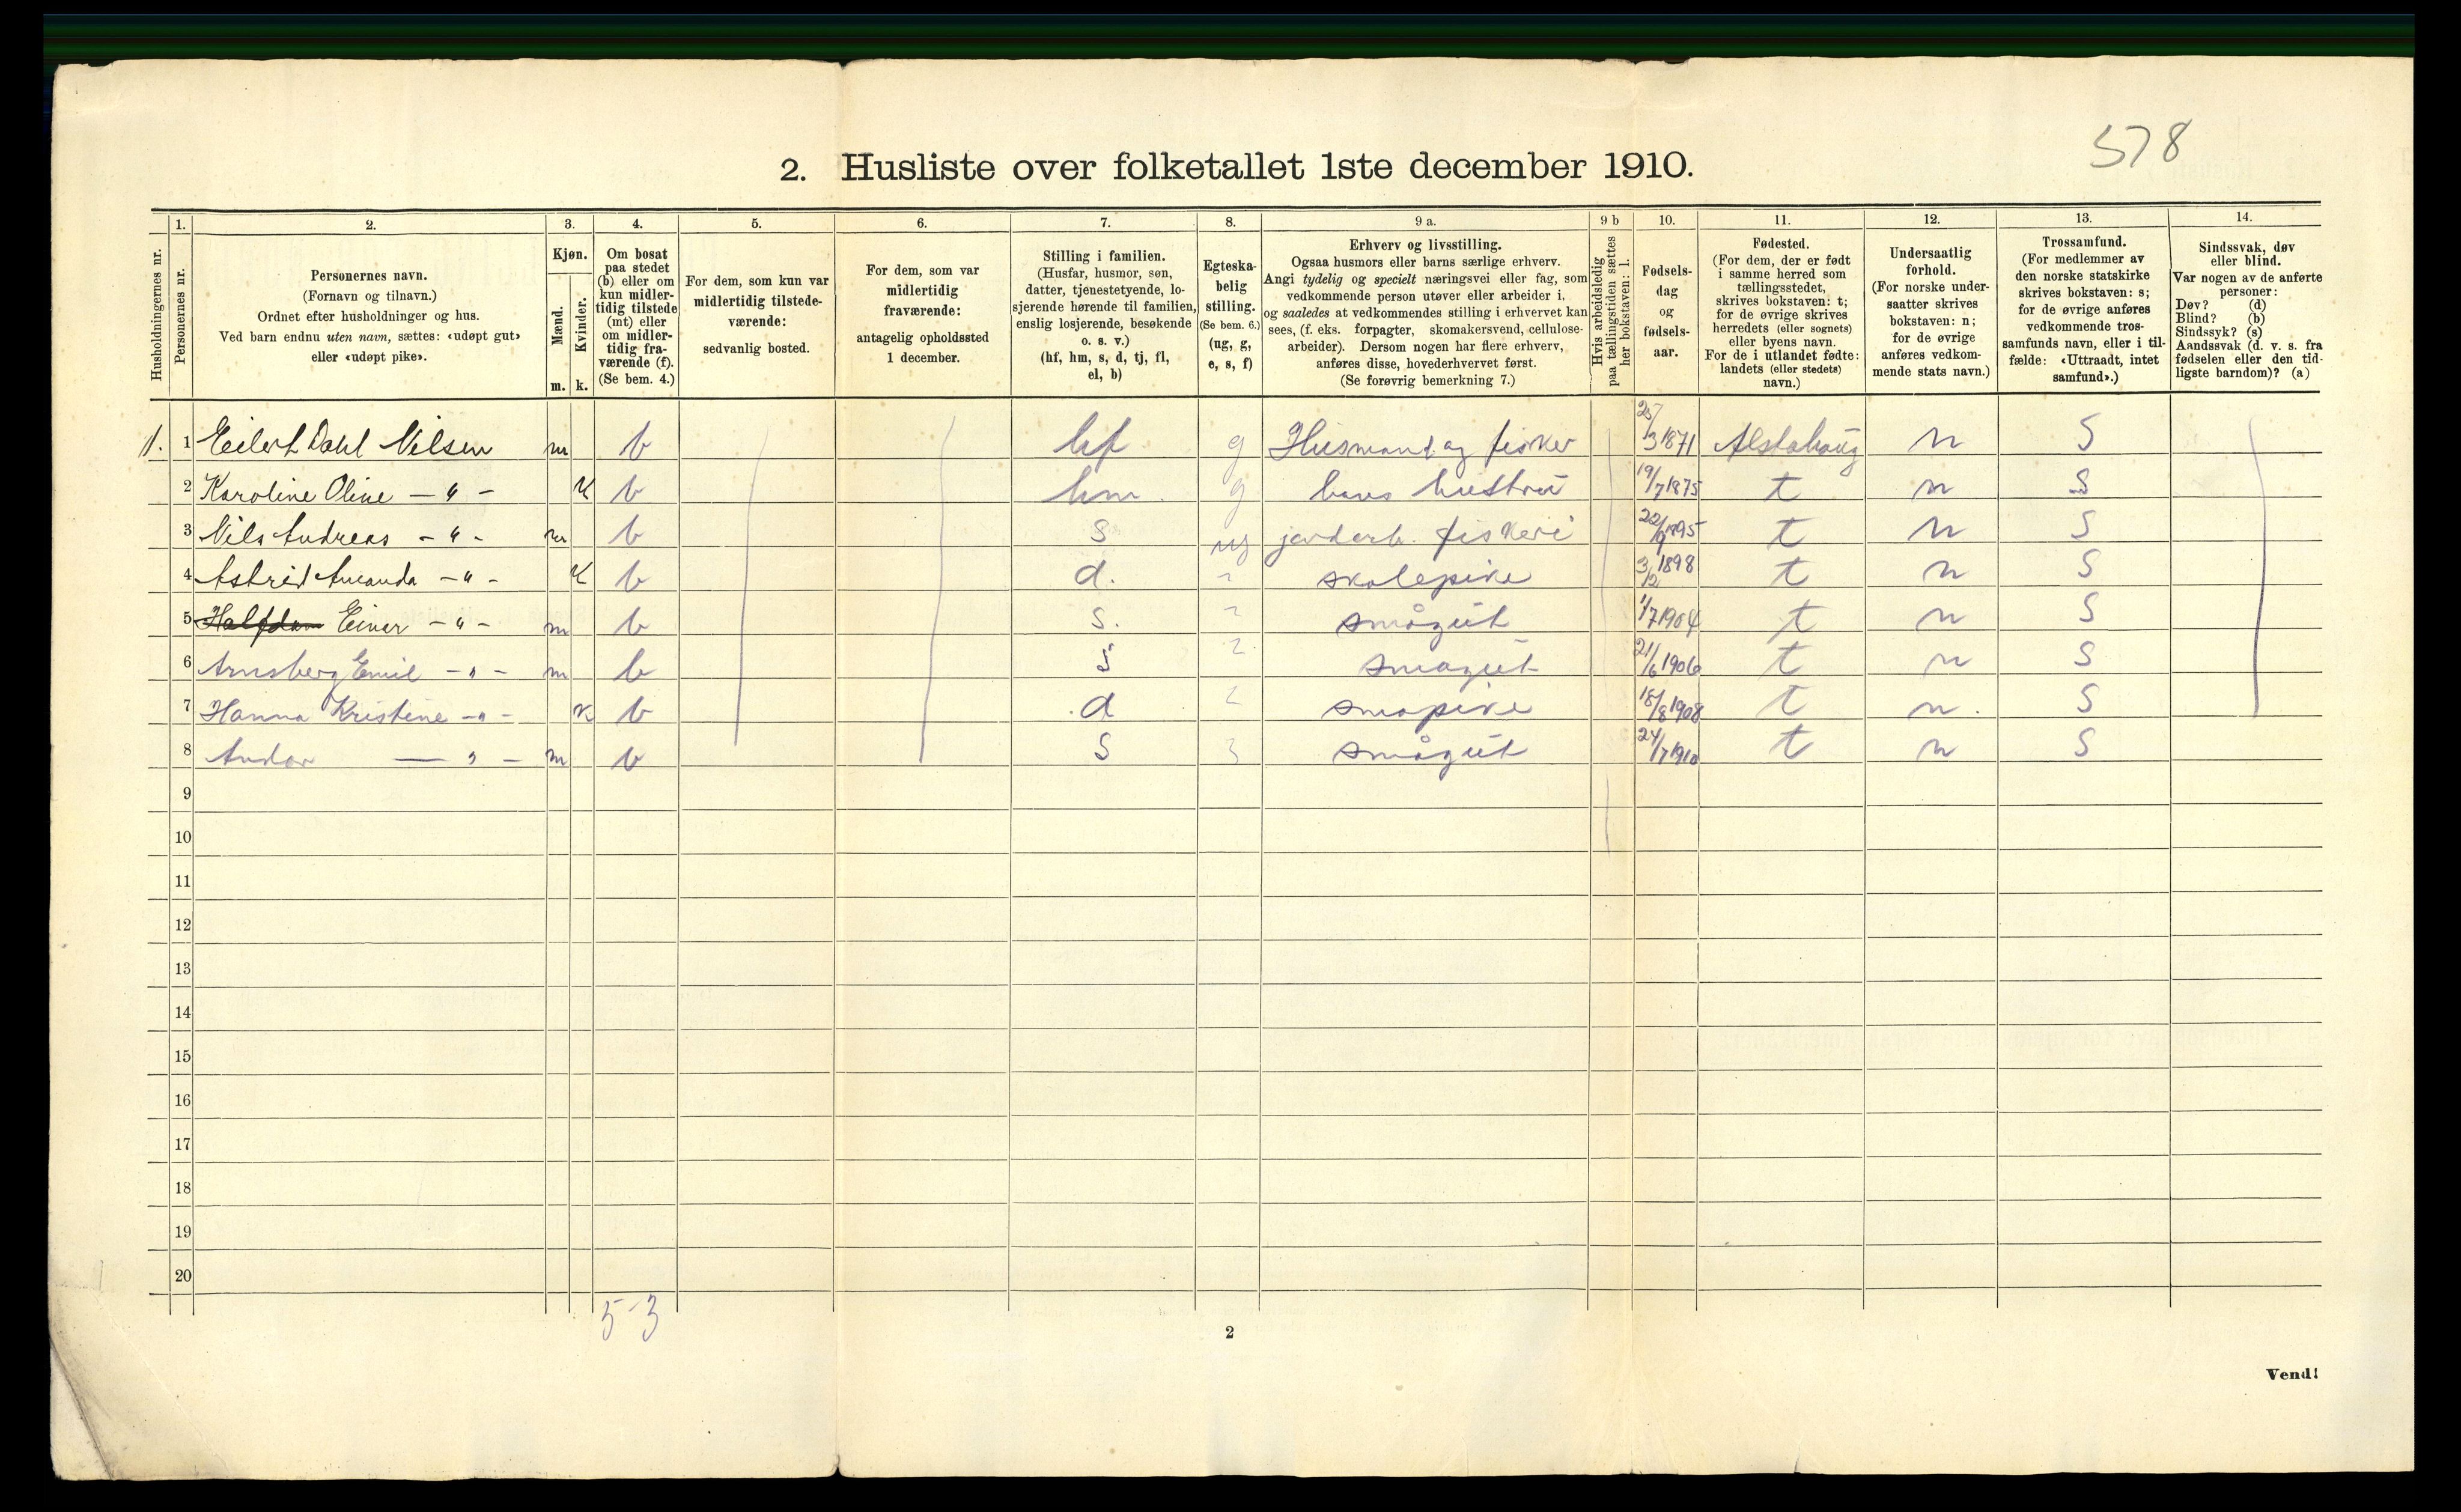 578
2. Husliste over folketallet 1ste december 1910.
1. 2. 3. 4. 5. 6. 7. 8. 9 a. 9 b 10. 11. 12. 13. 14.
Husholdningernes nr.
Personernes nr.
Personernes navn.
(Fornavn og tilnavn.)
Ordnet efter husholdninger og hus.
Ved barn endnu uten navn, sættes: «udøpt gut»
eller «udøpt pike».
Kjøn.
Mænd.
Kvinder.
m. k.
Om bosat
paa stedet
(b) eller om
kun midler-
tidig tilstede
(mt) eller
om midler-
tidig fra-
værende (f).
(Se bem. 4.)
For dem, som kun var
midlertidig tilstede-
værende:
sedvanlig bosted.
For dem, som var
midlertidig
fraværende:
antagelig opholdssted
1 december.
Stilling i familien.
(Husfar, husmor, søn,
datter, tjenestetyende, lo-
sjerende hørende til familien,
enslig losjerende, besøkende
o. s. v.)
(hf, hm, s, d, tj, fl,
el, b)
Egteska-
belig
stilling.
(Se bem. 6.)
(ug, g,
e, s, f)
Erhverv og livsstilling.
Ogsaa husmors eller barns særlige erhverv.
Angi tydelig og specielt næringsvei eller fag, som
vedkommende person utøver eller arbeider i,
og saaledes at vedkommendes stilling i erhvervet kan
sees, (f. eks. forpagter, skomakersvend, cellulose-
arbeider). Dersom nogen har flere erhverv,
anføres disse, hovederhvervet først.
(Se forøvrig bemerkning 7.)
Hvis arbeidsledig
paa tællingstiden sættes
her bokstaven: l.
Fødsels-
dag
og
fødsels-
aar.
Fødested.
(For dem, der er født
i samme herred som
tællingsstedet,
skrives bokstaven: t;
for de øvrige skrives
herredets (eller sognets)
eller byens navn.
For de i utlandet fødte:
landets (eller stedets)
navn.)
Undersaatlig
forhold.
(For norske under-
saatter skrives
bokstaven: n;
for de øvrige
anføres vedkom-
mende stats navn.)
Trossamfund.
(For medlemmer av
den norske statskirke
skrives bokstaven: s;
for de øvrige anføres
vedkommende tros-
samfunds navn, eller i til-
fælde: «Uttraadt, intet
samfund».)
Sindssvak, døv
eller blind.
Var nogen av de anførte
personer:
Døv? (d)
Blind? (b)
Sindssyk? (s)
Aandssvak (d. v. s. fra
fødselen eller den tid-
ligste barndom)? (a)
1. 1 Eilert Dahl Nilsen m b hf g Husmand og fisker 25/3 1871 Alstahaug n S
2 Karoline Oline — " — K b hm g hans hustru 19/7 1875 t n S
3 Nils Andreas — " — m b S ug jordarb. fiskeri 22/9 1895 t n S
4 Astrid Amanda — " — K b d. " skolepike 3/2 1898 t n S
5 Halfdan Einer — " — m b S. " smågut 1/7 1904 t n S
6 Arnsberg Emil — " — m b S " smagut 21/6 1906 t n S
7 Hanna Kristine — " — K b d " smapike 18/8 1908 t n. S
8 Andor — " — m b S " smågut 24/7 1910 t n S
9
10
11
12
13
14
15
16
17
18
19
20
5-3
2
Vend!